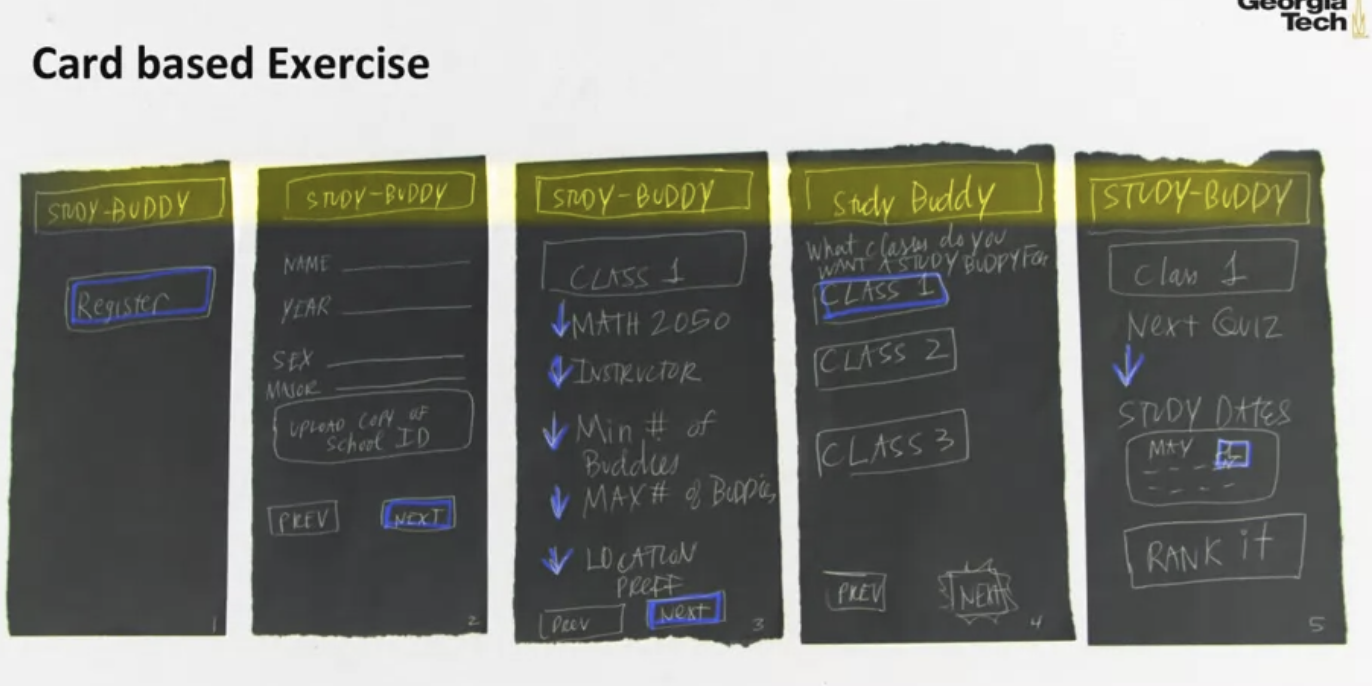 Georgia
Tech
Card based Exercise
STUDY-BUDDY
Register
1
STUDY-BUDDY
NAME
YEAR
SEX
MAJOR
UPLOAD COPY OF
School ID
PREV
NEXT
2
STUDY-BUDDY
CLASS 1
MATH 2050
INSTRUCTOR
Min # of
Buddies
MAX # of BUDDIES
LOCATION
PREF
PREV
NEXT
3
Study Buddy
What classes do you
WANT A STUDY BUDDY FOR
CLASS 1
CLASS 2
CLASS 3
PREV
NEXT
4
STUDY-BUDDY
Class 1
Next Quiz
STUDY DATES
MAY
RANK it
5